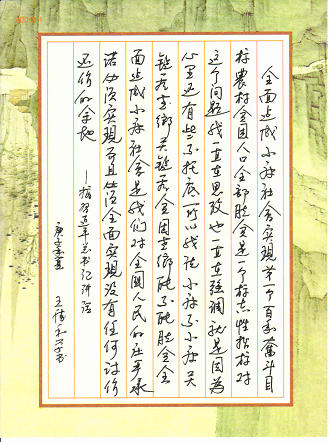 全面建成小康社会实现第一个百年奋斗目
标农村贫困人口全部脱贫是一个标志性指标对
这个问题我一直在思考也一直在强调就是因为
心里还有些不托底所以我说小康不小康关
键看老乡关键看贫困老乡能不能脱贫全
面建成小康社会是我们对全国人民的庄严承
诺必须实现而且必须全面实现没有任何讨价
还价的余地 ——摘习近平总书记讲话
庚子 王